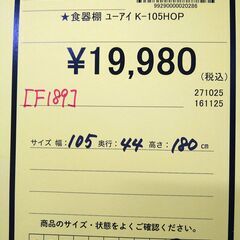 99290000020286
★食器棚 ユーアイ K-105HOP
¥19,980
(税込)
[F189]
271025
161125
サイズ 幅:105 奥行:44 高さ:180cm
商品のサイズ・状態をよくご確認ください。